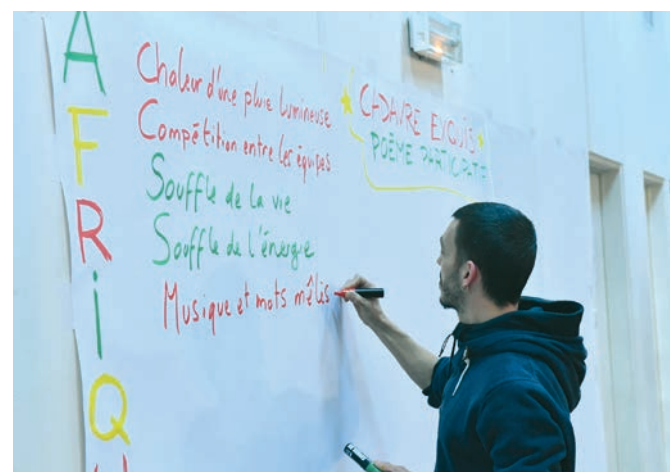 A
F
R
i
Q
Chaleur d'une pluie lumineuse
Compétition entre les équipes
Souffle de la vie
Souffle de l'énergie
Musique et mots mêlés
CADAVRE EXQUIS
POÈME PARTICIPATIF